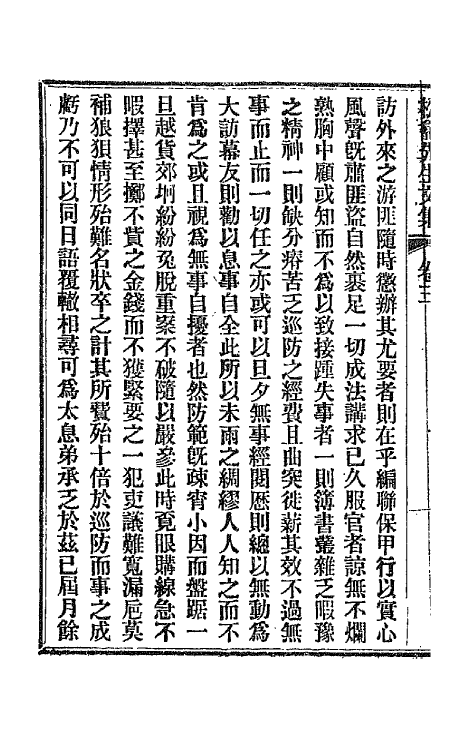 訪外來之游匪隨時懲辦其尤要者則在乎編聯保甲行以實心
風聲旣肅匪盜自然裹足一切成法講求已久服官者諒無不爛
熟胸中顧或知而不爲以致接踵失事者一則簿書叢雜乏暇豫
之精神一則缺分瘠苦乏巡防之經費且曲突徙薪其效不過無
事而止而一切任之亦或可以旦夕無事經閱歷則總以無動爲
大訪幕友則勸以息事自全此所以未雨之綢繆人人知之而不
肯爲之或且視爲無事自擾者也然防範旣疎宵小因而盤踞一
旦越貨郊坰紛紛兔脫重案不破隨以嚴參此時覓眼購線急不
暇擇甚至擲不貲之金錢而不獲緊要之一犯吏議難寬漏巵莫
補狼狽情形殆難名狀卒之計其所費殆十倍於巡防而事之成
虧乃不可以同日語覆轍相尋可爲太息弟承乏於茲已屆月餘